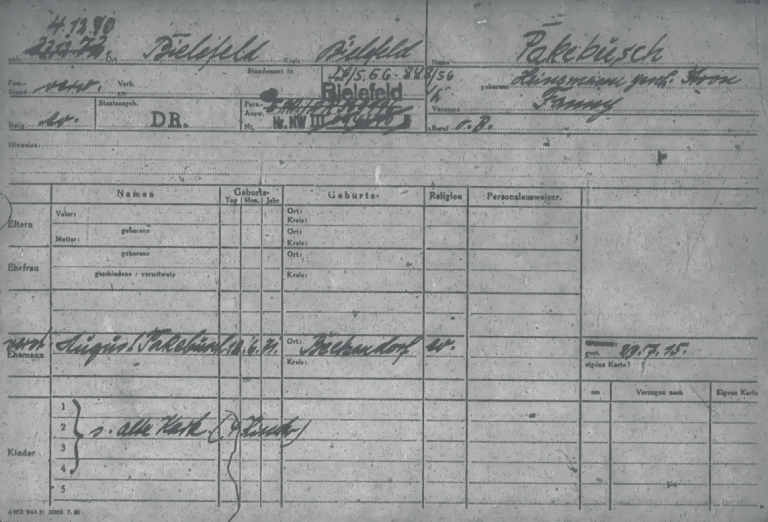 4.12.80
geb. Ort Bielefeld Kreis Bielefeld Name Pakebusch
Standesamt in
Fam.-Stand verw. Verh. am geborene Heinsmann gesch. Kron
Bielefeld
Vorname Fanny
Staatsangeh. Pers.-Ausw. Nr. NW III
Relig. ev. DR. Beruf o.B.
Hinweise:
Namen Geburts- Geburts- Religion Personalausweisnr.
Tag Mon. Jahr
Eltern Vater: Ort:
Kreis:
geborene Ort:
Mutter: Kreis:
Ehefrau geborene Ort:
Kreis:
geschiedene / verwitwete
verst. Ehemann August Pakebusch 12.6.71. Ort: Beckendorf ev.
Kreis:
gest. 29.7.15.
eigene Karte?
am Verzogen nach Eigene Karte
Kinder
1
2 s. alte Kart. (4 Kinder)
3
4
5